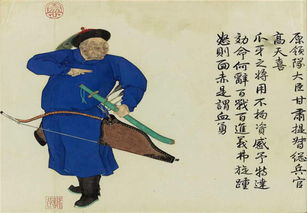 原領隊大臣甘肅提督總兵官
高天喜
爪牙之將用不拘資感予特達
効命何辭百戰百進義弗旋踵
怒則面赤是謂血勇